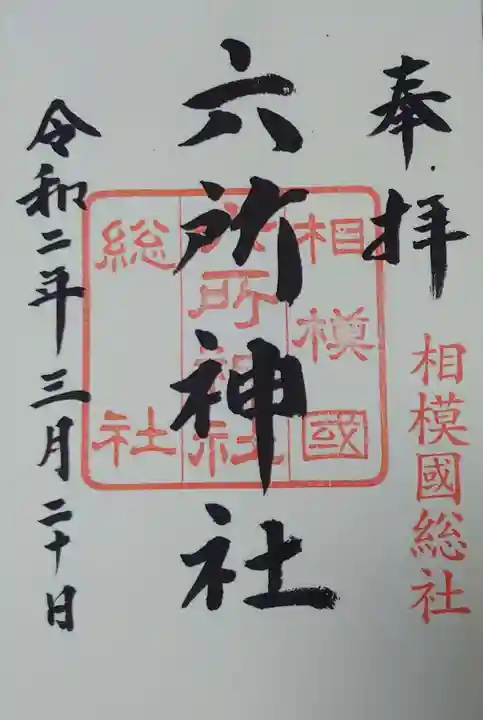 奉拝
相模國総社
六所神社
相模國
六所神社
総社
令和二年三月二十日